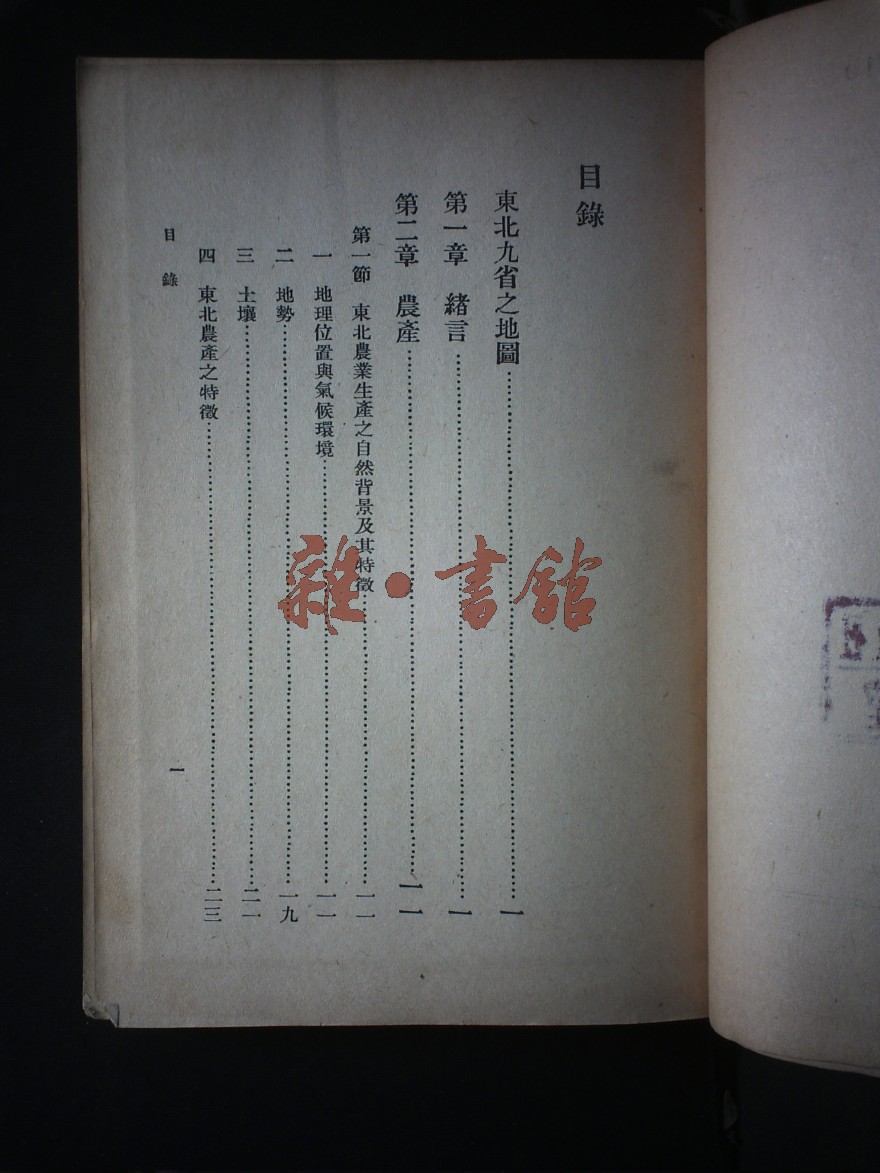 目錄
東北九省之地圖……一
第一章　緒言……一
第二章　農產……一一
第一節　東北農業生產之自然背景及其特徵……一一
一　地理位置與氣候環境……一一
二　地勢……一九
三　土壤……二一
四　東北農產之特徵……二三
目錄　一
雜·書館